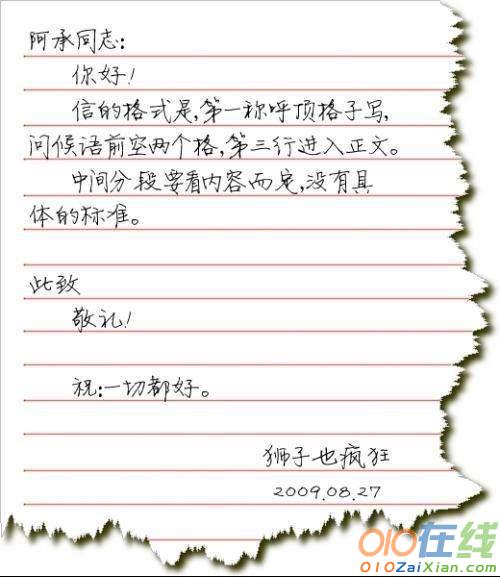 阿承同志：
你好！
信的格式是，第一称呼顶格子写，
问候语前空两个格，第三行进入正文。
中间分段要看内容而定，没有具
体的标准。
此致
敬礼！
祝：一切都好。
狮子也疯狂
2009.08.27
010在线
010ZaiXian.com